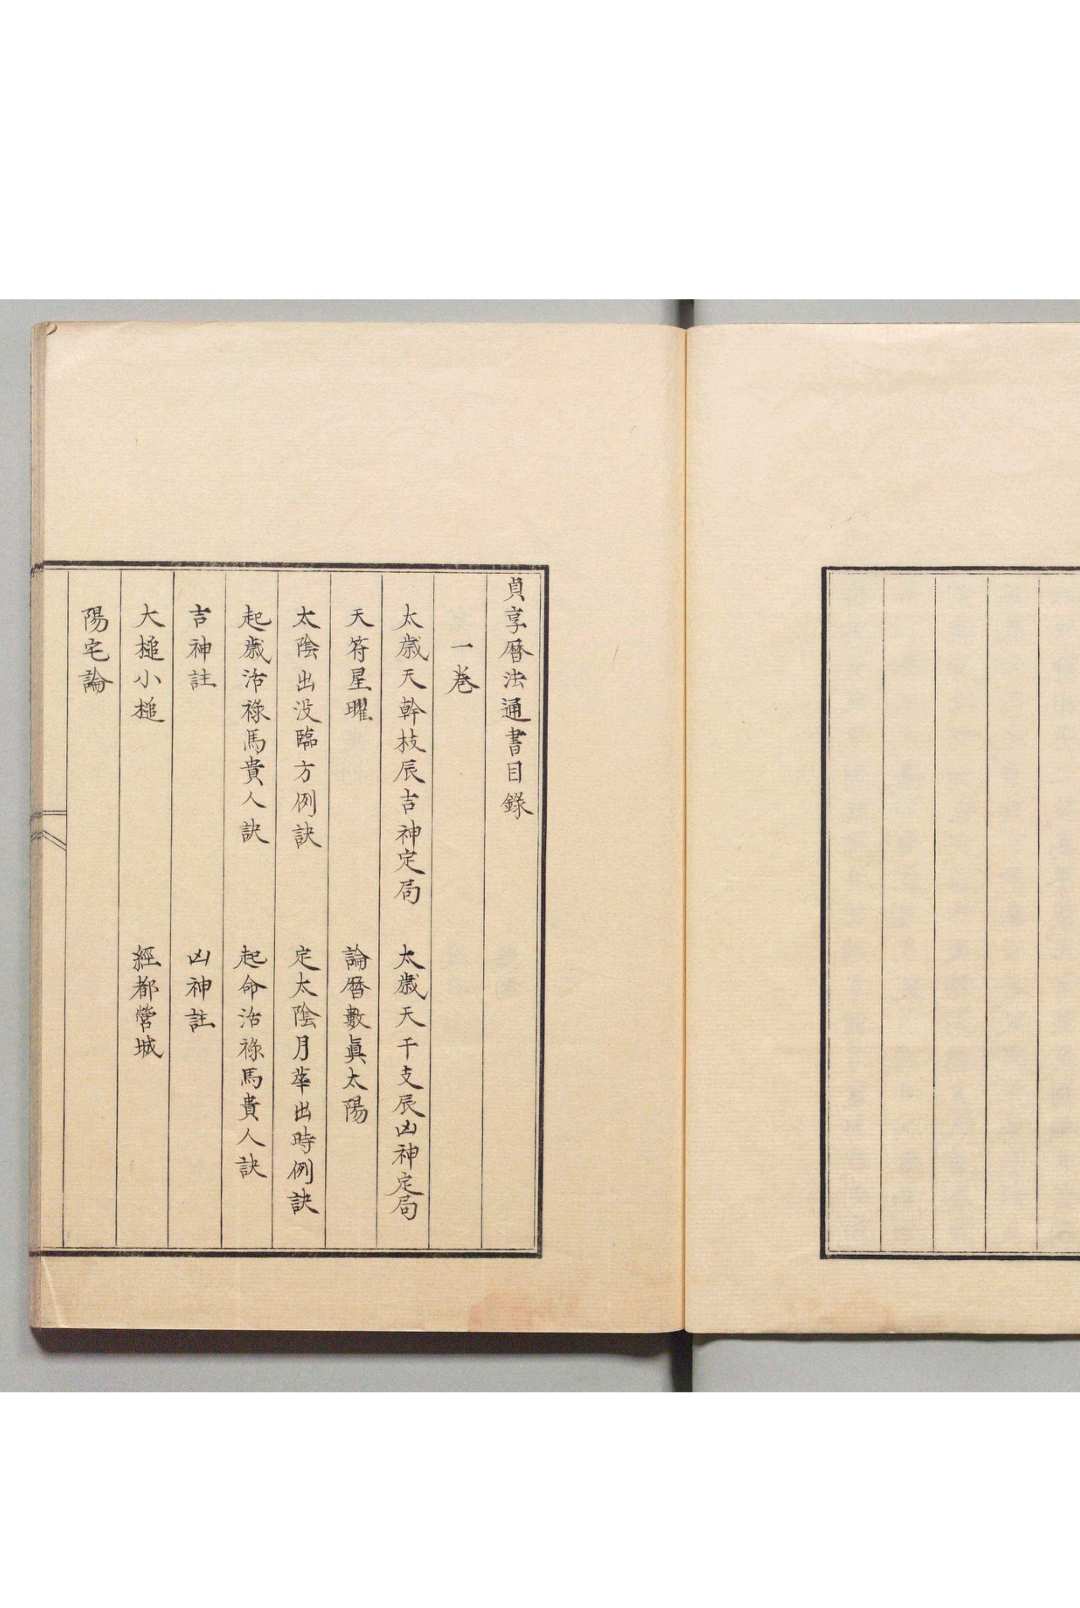 貞享曆法通書目錄
一卷
太歲天幹枝辰吉神定局　太歲天干支辰凶神定局
天符星曜　論曆數眞太陽
太陰出没臨方例訣　定太陰月華出時例訣
起歲治祿馬貴人訣　起命治祿馬貴人訣
吉神註　凶神註
大槌小槌　經都營城
陽宅論